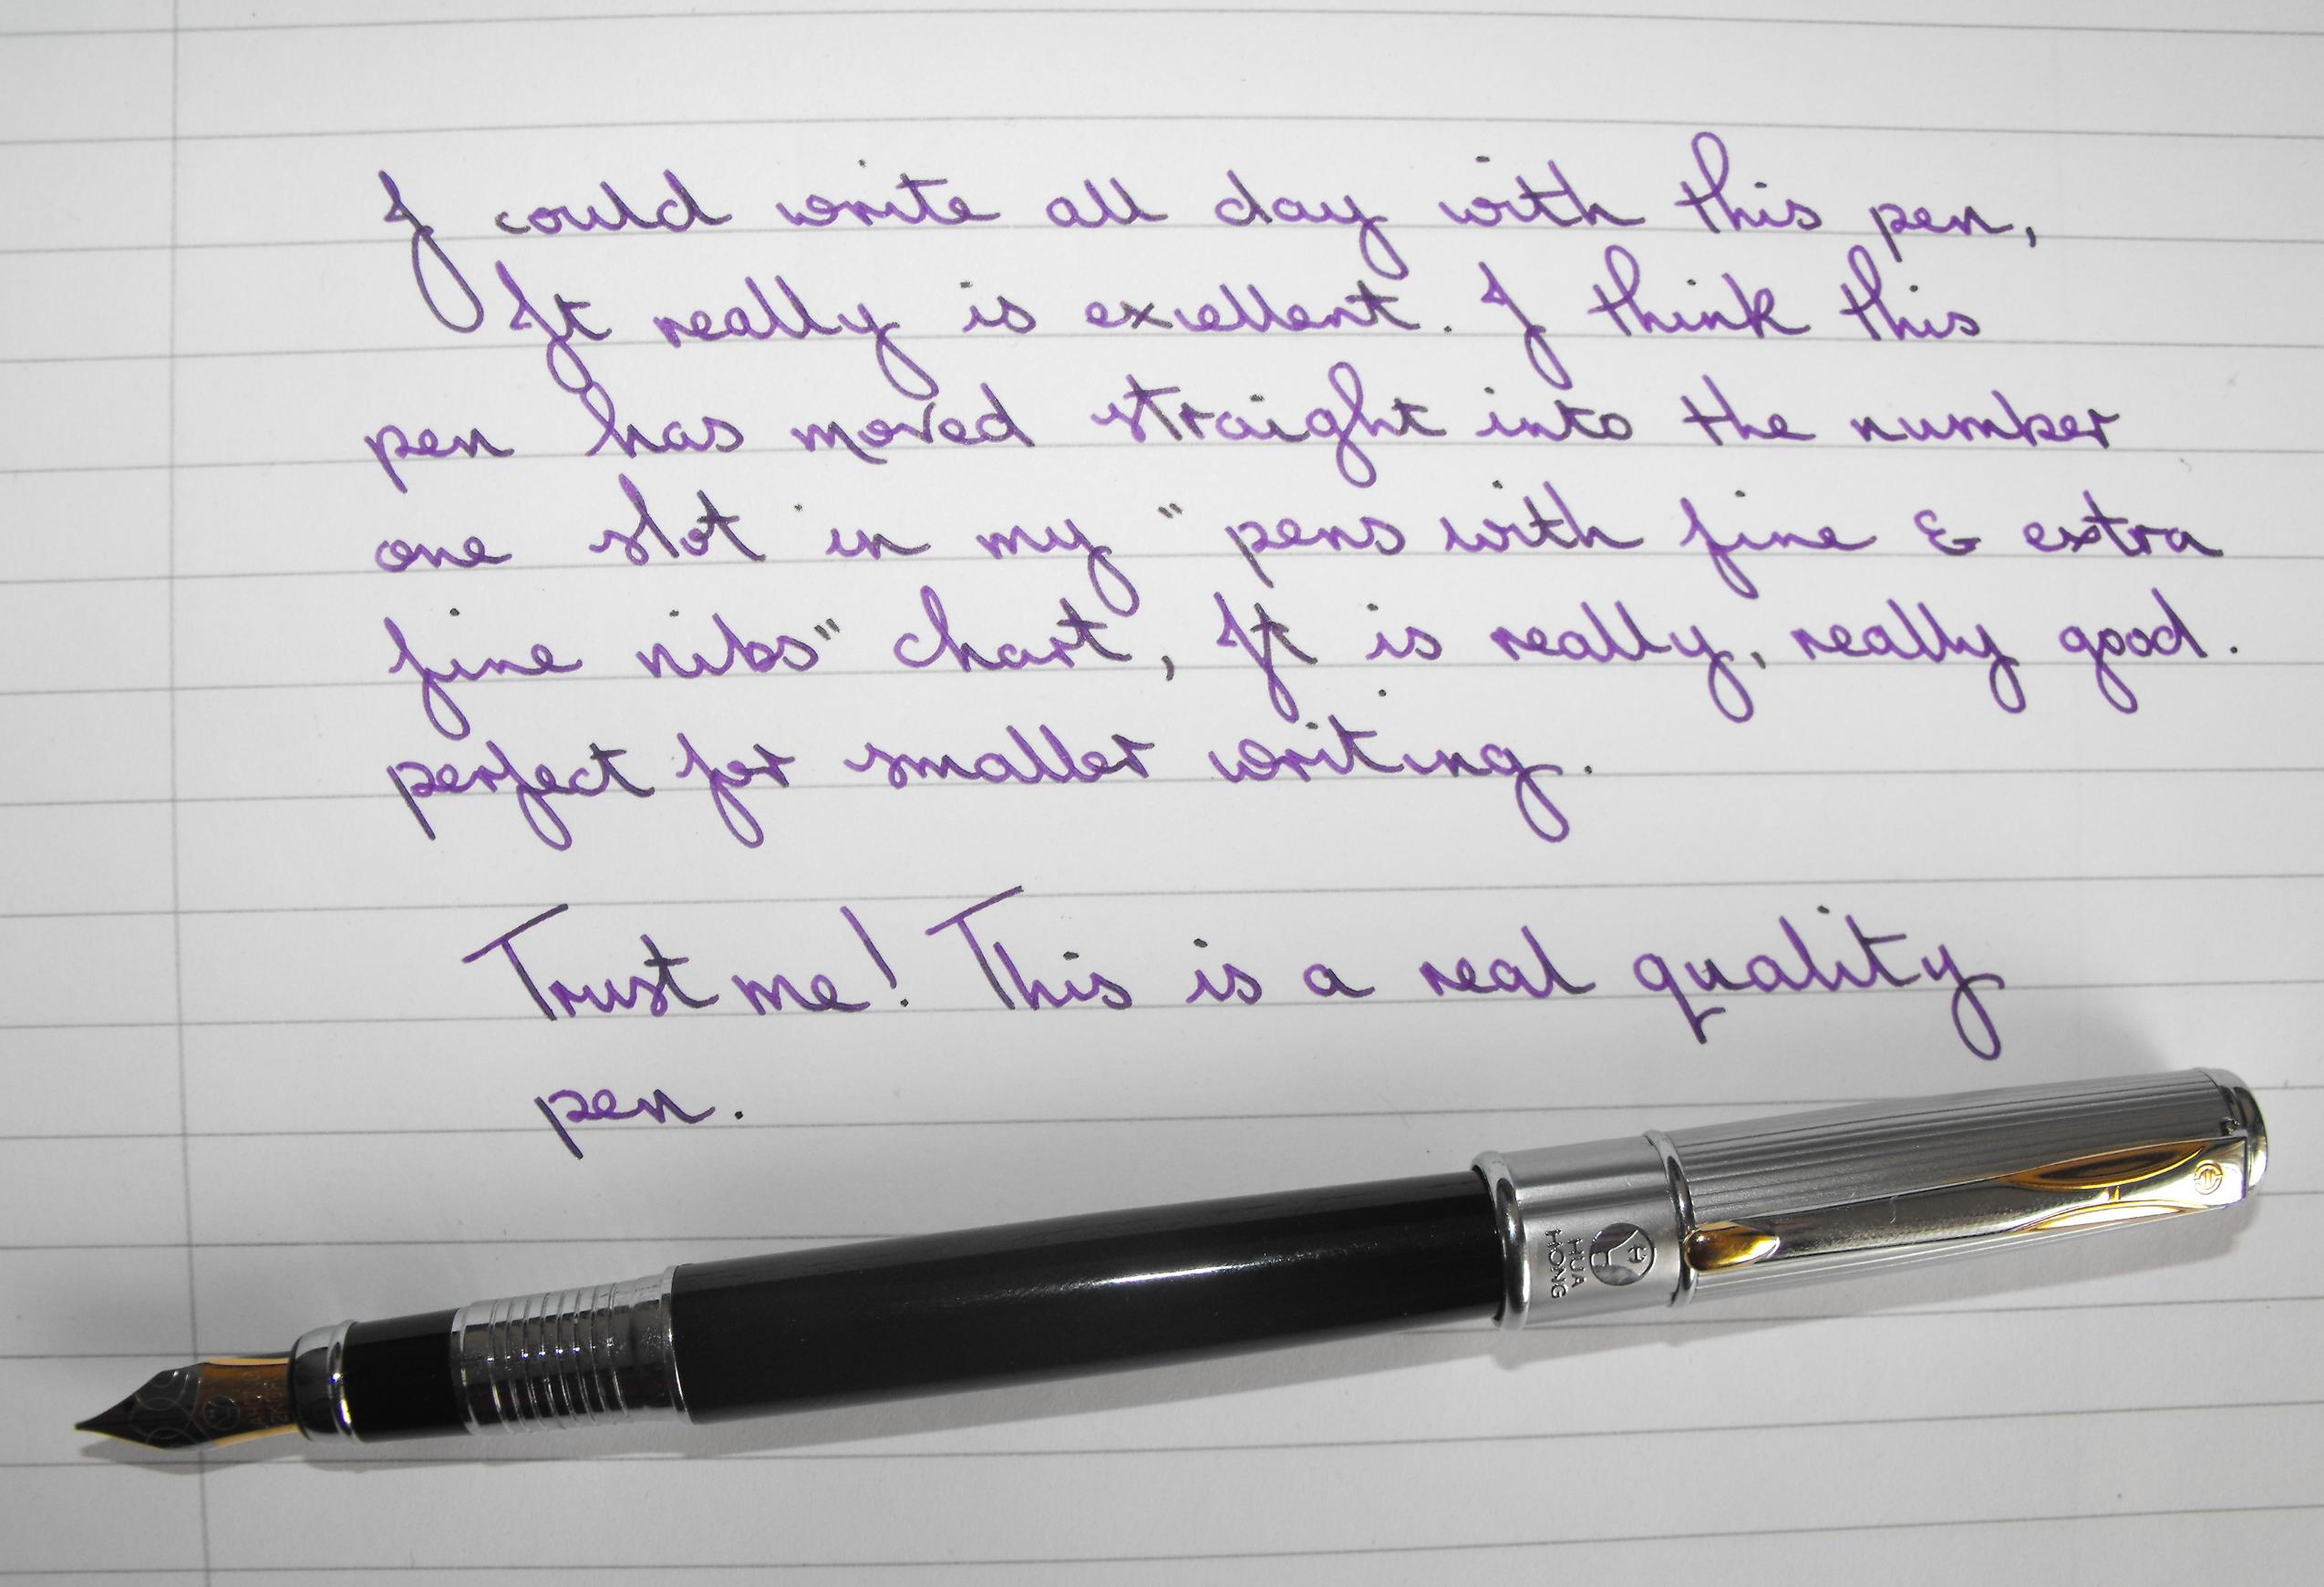 I could write all day with this pen,
It really is excellent. I think this
pen has moved straight into the number
one slot in my "pens with fine & extra
fine nibs" chart, It is really, really good.
perfect for smaller writing.
Trust me! This is a real quality
pen.
HUA
HONG